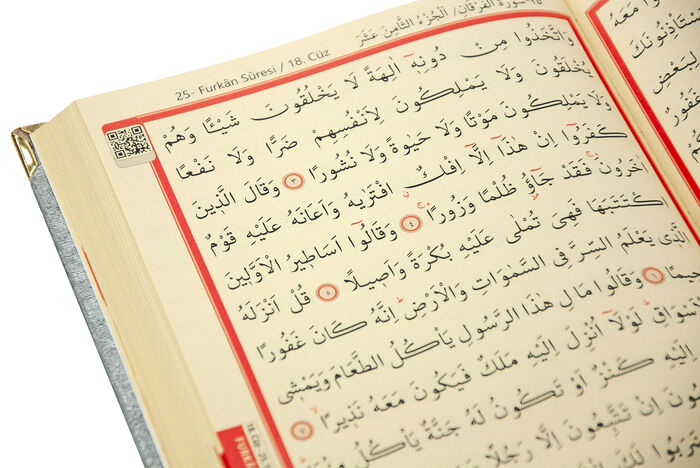 25- Furkân Sûresi / 18. Cüz
سورة الفرقان/ الجزء الثامن عشر
وَاتَّخَذُوا مِنْ دُونِهٖٓ اٰلِهَةً لَا يَخْلُقُونَ شَيْـًٔا وَهُمْ
يُخْلَقُونَ وَلَا يَمْلِكُونَ لِاَنْفُسِهِمْ ضَرًّا وَلَا نَفْعًا
وَلَا يَمْلِكُونَ مَوْتًا وَلَا حَيٰوةً وَلَا نُشُورًا ﴿٣﴾ وَقَالَ الَّذٖينَ
كَفَرُٓوا اِنْ هٰذَٓا اِلَّٓا اِفْكٌ افْتَرٰيهُ وَاَعَانَهُ عَلَيْهِ قَوْمٌ
اٰخَرُونَ فَقَدْ جَٓاؤُ ظُلْمًا وَزُورًا ﴿٤﴾ وَقَالُٓوا اَسَاطٖيرُ الْاَوَّلٖينَ
اكْتَتَبَهَا فَهِيَ تُمْلٰى عَلَيْهِ بُكْرَةً وَاَصٖيلًا ﴿٥﴾ قُلْ اَنْزَلَهُ
الَّذٖي يَعْلَمُ السِّرَّ فِي السَّمٰوَاتِ وَالْاَرْضِ اِنَّهُ كَانَ غَفُورًا
﴿٦﴾ وَقَالُوا مَالِ هٰذَا الرَّسُولِ يَأْكُلُ الطَّعَامَ وَيَمْشٖي
لَوْلَٓا اُنْزِلَ اِلَيْهِ مَلَكٌ فَيَكُونَ مَعَهُ نَذٖيرًا ﴿٧﴾
اِلَيْهِ كَنْزٌ اَوْ تَكُونُ لَهُ جَنَّةٌ يَأْكُلُ
اِنْ تَتَّبِعُونَ اِلَّا رَجُلًا
مَعَهُ
لِبَعْضِ